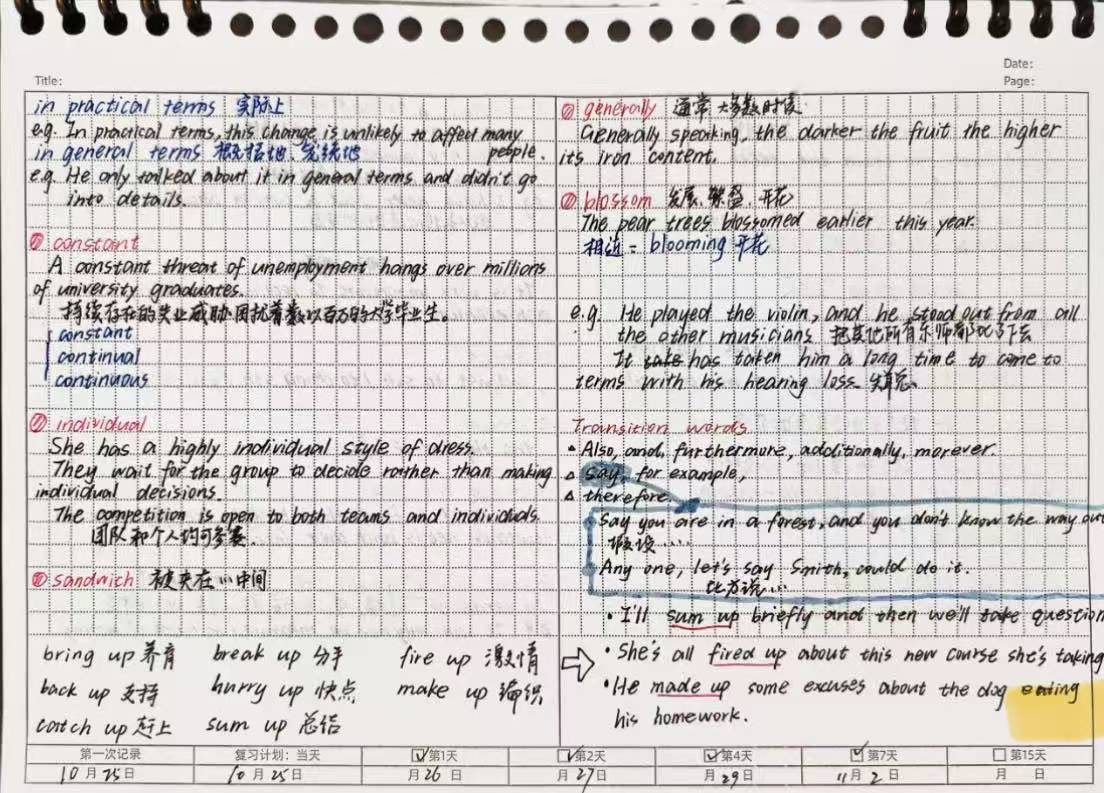 Date:
Title:
Page:
in practical terms 实际上
e.g. In practical terms, this change is unlikely to affect many people.
in general terms 概括地、笼统地
e.g. He only talked about it in general terms and didn't go
into details.
constant
A constant threat of unemployment hangs over millions
of university graduates.
持续存在的失业威胁困扰着数以百万的大学毕业生。
constant
continual
continuous
individual
She has a highly individual style of dress.
They wait for the group to decide rather than making
individual decisions.
The competition is open to both teams and individuals.
团队和个人均可参赛.
sandwich 被夹在…中间
bring up 养育 break up 分手 fire up 激情
back up 支持 hurry up 快点 make up 编织
catch up 赶上 sum up 总结
generally 通常 大多数时候
Generally speaking, the darker the fruit the higher
its iron content.
blossom 发展、繁盛、开花
The pear trees blossomed earlier this year.
相近 = blooming 开花
e.g. He played the violin, and he stood out from all
the other musicians 把其他所有乐师都比了下去
It take has taken him a long time to come to
terms with his hearing loss.
Transition words
• Also, and, furthermore, additionally, morever.
△ say, for example,
△ therefore.
Say you are in a forest, and you don't know the way out
假设……
Any one, let's say Smith, could do it.
比方说…
• I'll sum up briefly and then we'll take question
• She's all fired up about this new course she's taking
• He made up some excuses about the dog eating
his homework.
第一次记录 复习计划：当天 第1天 第2天 第4天 第7天 第15天
10月25日 10月25日 月26日 月27日 月29日 11月2日 月 日